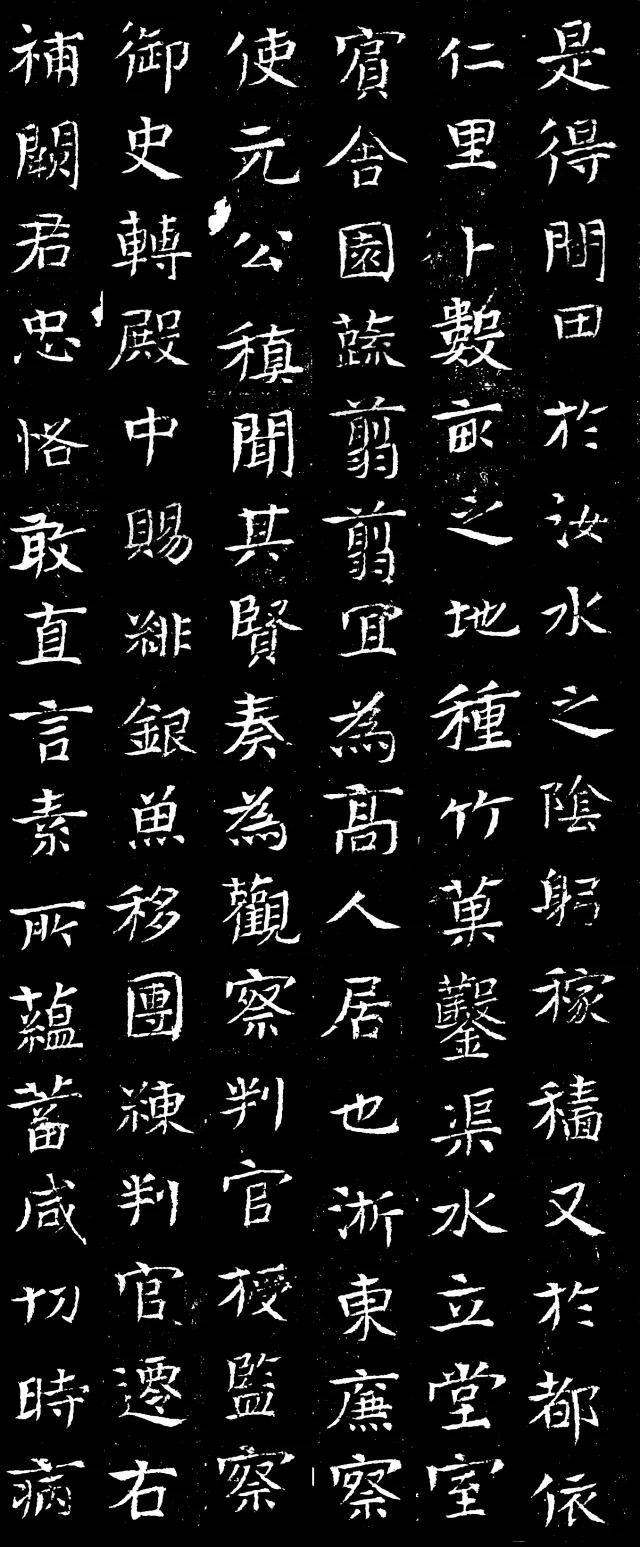 是得閒田於汝水之陰躬稼穡又於都依
仁里卜數畝之地種竹菓鑿渠水立堂室
賔舍園蔬翦翦冝為髙人居也浙東廉察
使元公稹聞其賢奏為觀察判官授監察
御史轉殿中賜緋銀魚移團練判官遷右
補闕君忠恪敢直言素所蘊蓄咸切時病